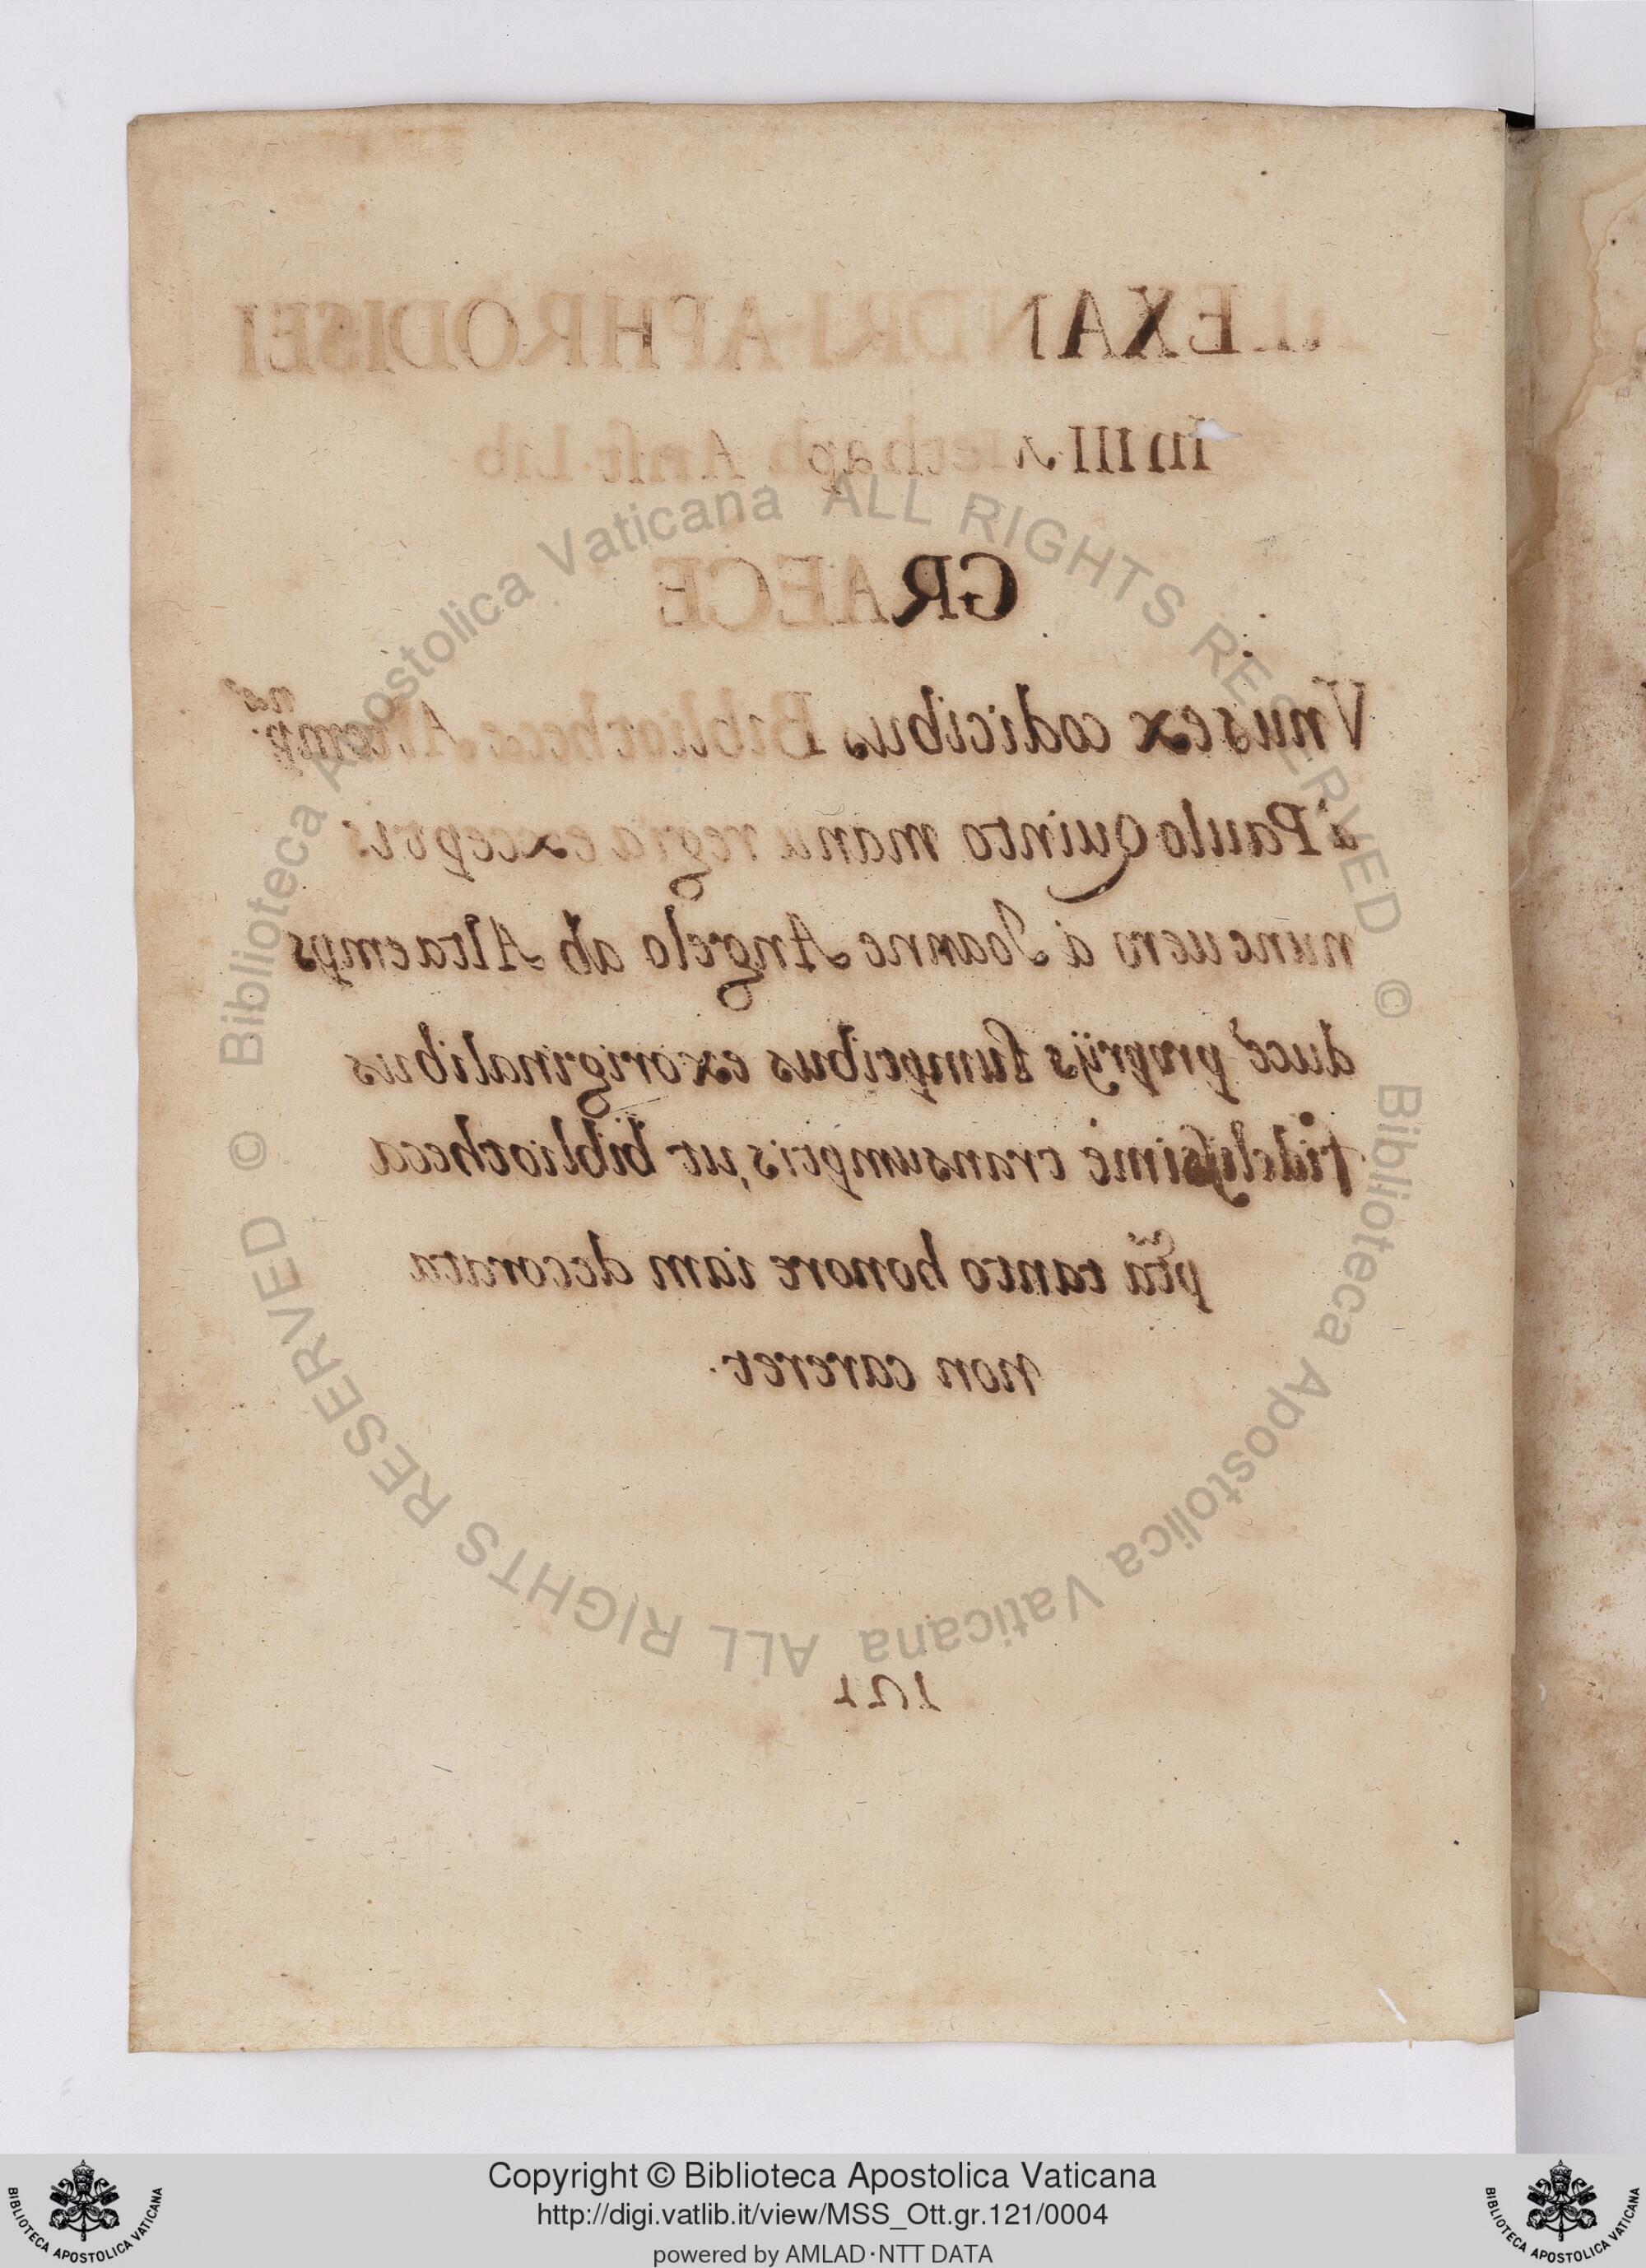 ALEXANDRI APHRODISEI
In IIII Methaph. Arist. Lib
GRAECE
Vnus ex codicibus Bibliothece Altemp.
à Paulo Quinto manu regia exceptis
nunc uero à Joanne Angelo ab Altaemps
duce proprijs sumptibus ex originalibus
fidelissimè transumptis, ut bibliotheca
pñta tanto honore iam decorata
non careret.
Bibliotheca Apostolica Vaticana ALL RIGHTS RESERVED ©
Biblioteca Apostolica Vaticana ALL RIGHTS RESERVED ©
Copyright © Biblioteca Apostolica Vaticana
http://digi.vatlib.it/view/MSS_Ott.gr.121/0004
powered by AMLAD·NTT DATA
BIBLIOTECA APOSTOLICA VATICANA
BIBLIOTECA APOSTOLICA VATICANA